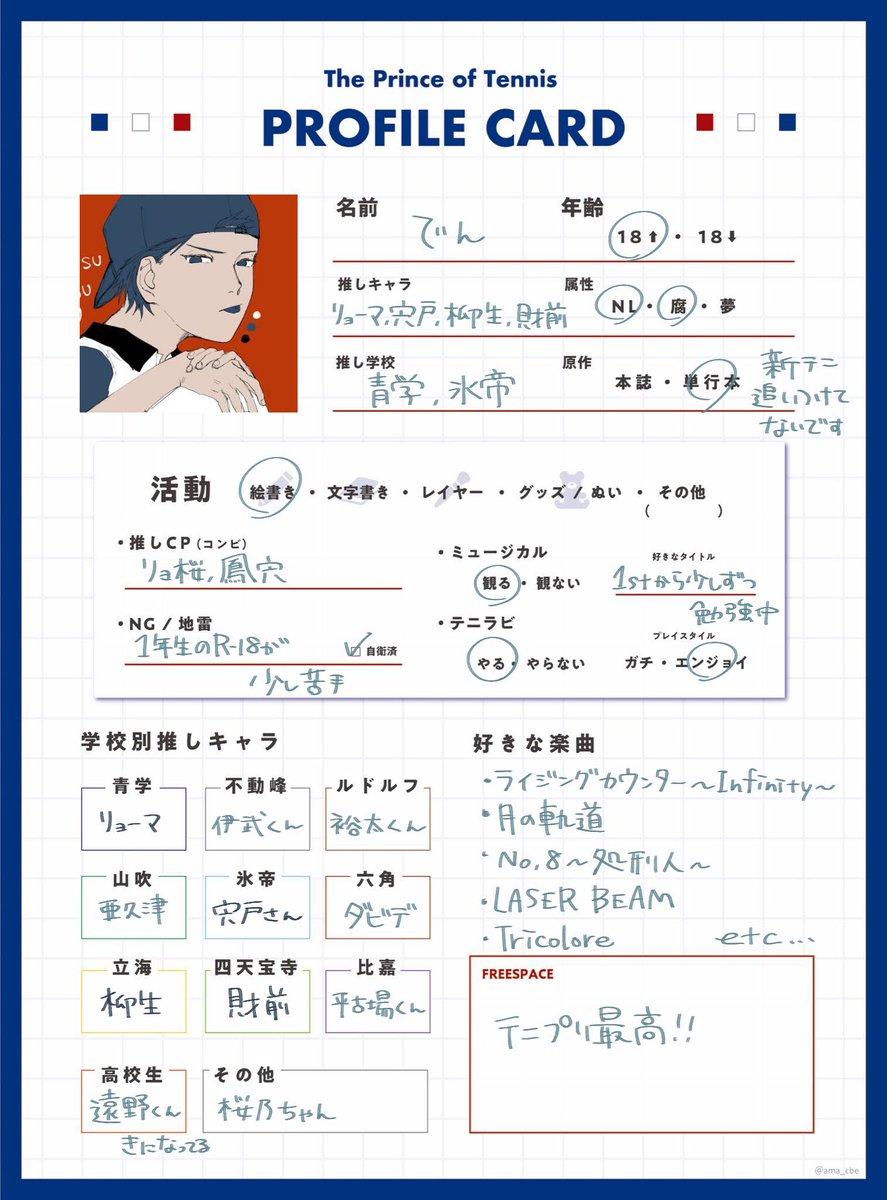 The Prince of Tennis
PROFILE CARD
SU
SU
名前 でん 年齢 18⬆・18⬇
推しキャラ 属性
リョーマ,宍戸,柳生,財前 NL・腐・夢
推し学校 原作
青学,氷帝 本誌・単行本
新テニ
追いつけて
ないです
活動 絵書き・文字書き・レイヤー・グッズ/ぬい・その他
( )
・推しCP(コンビ)
リョ桜,鳳宍
・NG/地雷
1年生のR-18が
少し苦手
自衛済
・ミュージカル 好きなタイトル
観る・観ない 1stから少しずつ
勉強中
・テニラビ プレイスタイル
やる・やらない ガチ・エンジョイ
学校別推しキャラ
青学 不動峰 ルドルフ
リョーマ 伊武くん 裕太くん
山吹 氷帝 六角
亜久津 宍戸さん ダビデ
立海 四天宝寺 比嘉
柳生 財前 平古場くん
高校生 その他
遠野くん 桜乃ちゃん
きになってる
好きな楽曲
・ライジングカウンター〜Infinity〜
・月の軌道
・No,8〜処刑人〜
・LASER BEAM
・Tricolore etc...
FREESPACE
テニプリ最高!!
@ama_cbe